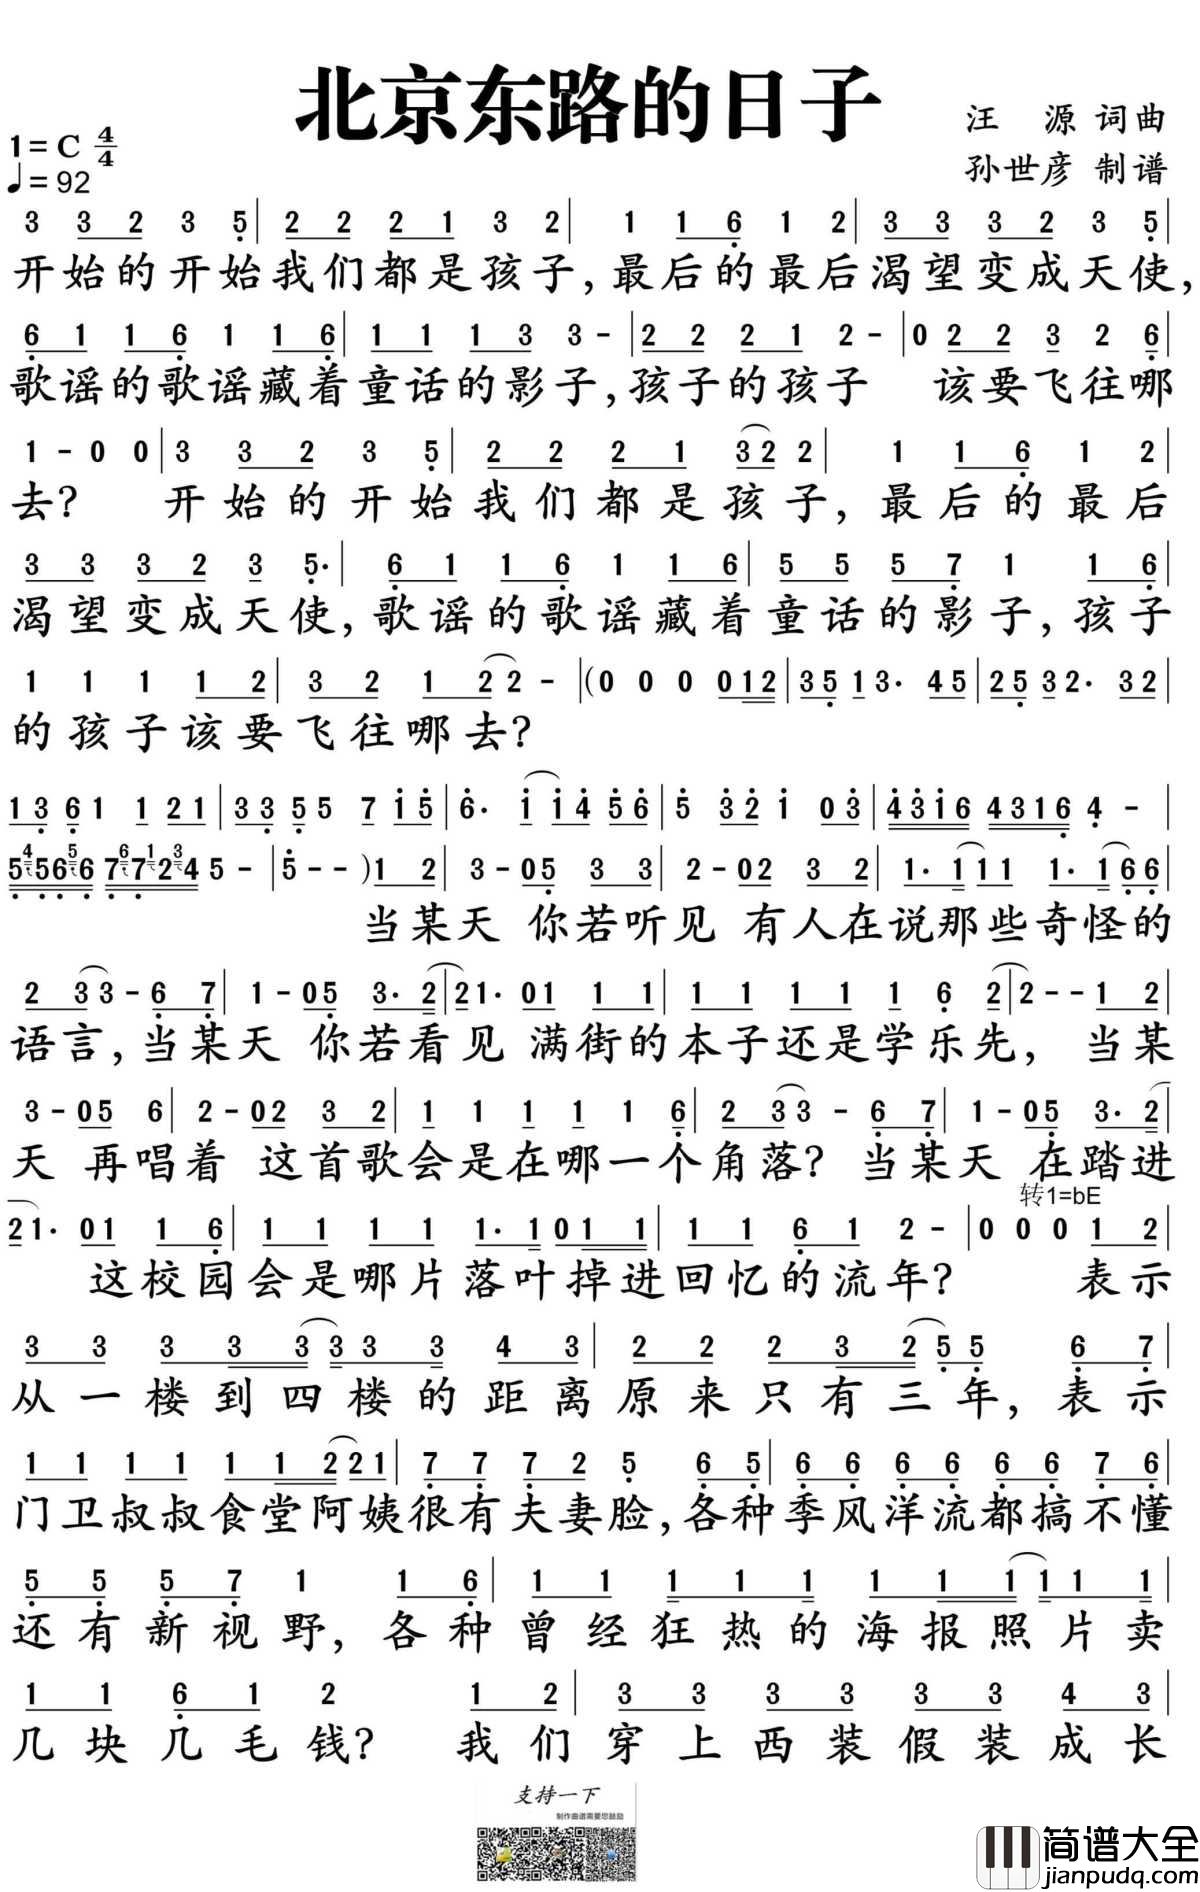 北京东路的日子
汪 源 词曲
孙世彦 制谱
1=C 4/4
♩=92
3 3 2 3 5 | 2 2 2 1 3 2 | 1 1 6 1 2 | 3 3 3 2 3 5 |
开始的开始我们都是孩子,最后的最后渴望变成天使,
6 1 1 6 1 1 6 | 1 1 1 3 3 - | 2 2 2 1 2 - | 0 2 2 3 2 6 |
歌谣的歌谣藏着童话的影子,孩子的孩子 该要飞往哪
1 - 0 0 | 3 3 2 3 5 | 2 2 2 1 3 2 2 | 1 1 6 1 2 |
去? 开始的开始我们都是孩子,最后的最后
3 3 3 2 3 5· | 6 1 1 6 1 1 6 | 5 5 5 7 1 1 6 |
渴望变成天使,歌谣的歌谣藏着童话的影子,孩子
1 1 1 1 2 | 3 2 1 2 2 - | (0 0 0 0 1 2 | 3 5 1 3· 4 5 | 2 5 3 2· 3 2 |
的孩子该要飞往哪去?
1 3 6 1 1 2 1 | 3 3 5 5 7 1 5 | 6· 1 1 4 5 6 | 5 3 2 1 0 3 | 4 3 1 6 4 3 1 6 4 - |
5 4 5 6 5 6 7 6 7 1 2 3 4 5 - | 5 - - ) 1 2 | 3 - 0 5 3 3 | 2 - 0 2 3 2 | 1· 1 1 1 1· 1 6 6 |
当某天 你若听见 有人在说那些奇怪的
2 3 3 - 6 7 | 1 - 0 5 3· 2 | 2 1· 0 1 1 1 | 1 1 1 1 1 6 2 | 2 - - 1 2 |
语言,当某天 你若看见 满街的本子还是学乐先, 当某
3 - 0 5 6 | 2 - 0 2 3 2 | 1 1 1 1 1 6 | 2 3 3 - 6 7 | 1 - 0 5 3· 2 |
天 再唱着 这首歌会是在哪一个角落? 当某天 在踏进
转1=bE
2 1· 0 1 1 6 | 1 1 1 1 1· 1 0 1 1 | 1 1 6 1 2 - | 0 0 0 1 2 |
这校园会是哪片落叶掉进回忆的流年? 表示
3 3 3 3 3 3 3 3 4 3 | 2 2 2 3 2 5 5 6 7 |
从一楼到四楼的距离原来只有三年,表示
1 1 1 1 1 1 2 2 1 | 7 7 7 2 5 6 5 | 6 6 6 6 6 6 7 6 |
门卫叔叔食堂阿姨很有夫妻脸,各种季风洋流都搞不懂
5 5 5 7 1 1 6 | 1 1 1 1 1 1 1 1 1 1 1 |
还有新视野,各种曾经狂热的海报照片卖
1 1 6 1 2 1 2 | 3 3 3 3 3 3 4 3 |
几块几毛钱? 我们穿上西装假装成长
支持一下
制作曲谱需要您鼓励
简谱大全
jianpudq.com